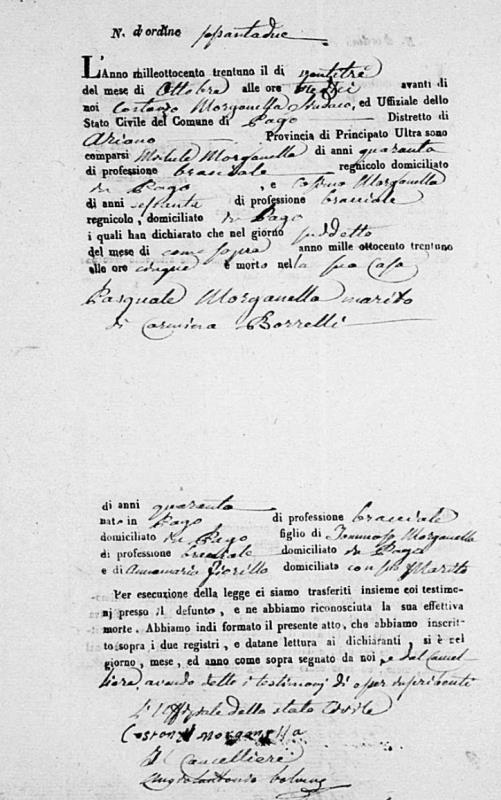 N. d'ordine sessantadue
L'Anno milleottocento trentuno il di ventitrè
del mese di Ottobre alle ore avanti di
noi Costanzo Morganella Sindaco, ed Uffiziale dello
Stato Civile del Comune di Pago Distretto di
Ariano Provincia di Principato Ultra sono
comparsi Michele Morganella di anni quaranta
di professione bracciale regnicolo domiciliato
in Pago , e Cosimo Morganella
di anni sessanta di professione bracciale
regnicolo, domiciliato in Pago
i quali han dichiarato che nel giorno suddetto
del mese di come sopra anno mille ottocento trentuno
alle ore cinque è morto nella sua Casa
Pasquale Morganella marito
di Carmina Borrelli
di anni quaranta
nato in Pago di professione bracciale
domiciliato in Pago figlio di Tommaso Morganella
di professione bracciale domiciliato in Pago
e di Annamaria Fiorillo domiciliato con suo Marito
Per esecuzione della legge ci siamo trasferiti insieme coi testimo-
nj presso il defunto, e ne abbiamo riconosciuta la sua effettiva
morte. Abbiamo indi formato il presente atto, che abbiamo inscrit-
to sopra i due registri, e datane lettura ai dichiaranti, si è nel
giorno, mese, ed anno come sopra segnato da noi, e dal Cancel-
liere, avendo detto i testimonj di
L'Uffiziale dello stato Civile
Costanzo Morganella
Il Cancelliere